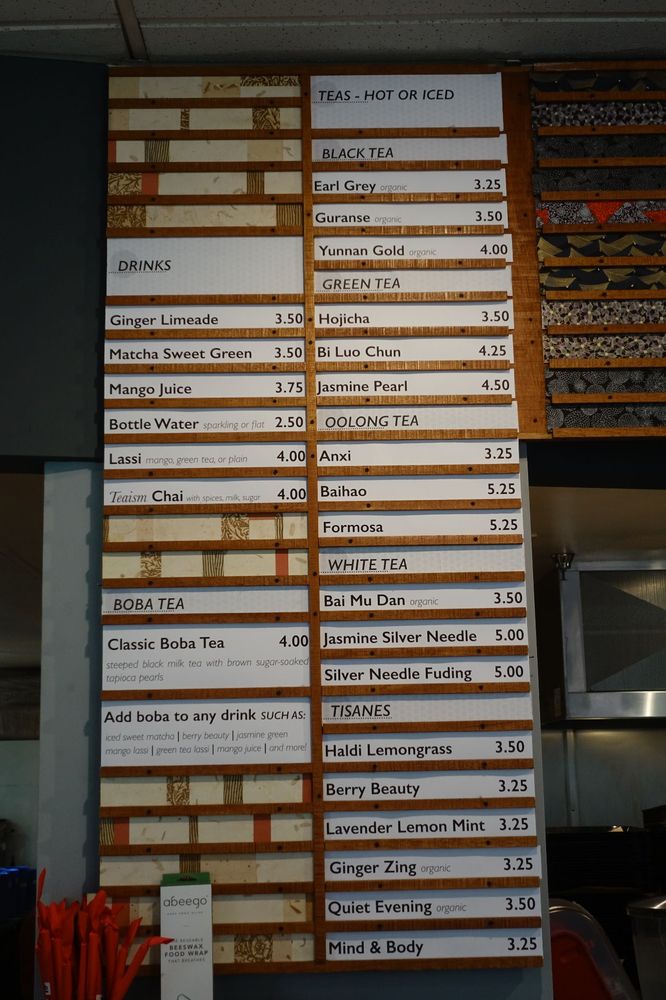 DRINKS
Ginger Limeade 3.50
Matcha Sweet Green 3.50
Mango Juice 3.75
Bottle Water sparkling or flat 2.50
Lassi mango, green tea, or plain 4.00
Teaism Chai with spices, milk, sugar 4.00
BOBA TEA
Classic Boba Tea 4.00
steeped black milk tea with brown sugar-soaked
tapioca pearls
Add boba to any drink SUCH AS:
iced sweet matcha | berry beauty | jasmine green
mango lassi | green tea lassi | mango juice | and more!
TEAS - HOT OR ICED
BLACK TEA
Earl Grey organic 3.25
Guranse organic 3.50
Yunnan Gold organic 4.00
GREEN TEA
Hojicha 3.50
Bi Luo Chun 4.25
Jasmine Pearl 4.50
OOLONG TEA
Anxi 3.25
Baihao 5.25
Formosa 5.25
WHITE TEA
Bai Mu Dan organic 3.50
Jasmine Silver Needle 5.00
Silver Needle Fuding 5.00
TISANES
Haldi Lemongrass 3.50
Berry Beauty 3.25
Lavender Lemon Mint 3.25
Ginger Zing organic 3.25
Quiet Evening organic 3.50
Mind & Body 3.25
abeego
REUSABLE
BEESWAX
FOOD WRAP
THAT BREATHES